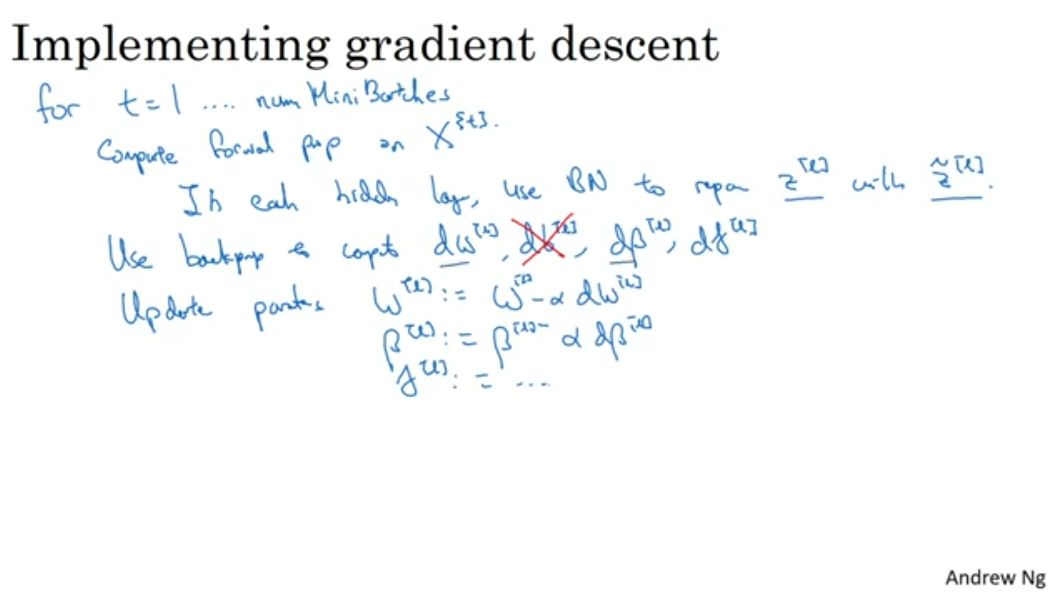 Implementing gradient descent
for t = 1 .... num Mini Batches
Compute forwal pop on X^{t}.
In each hidden lay, use BN to repan z^[l] with z̃^[l].
Use backprop to compt dw^[l], db^[l], dβ^[l], dγ^[l]
Update w^[l] := w^[l] - α dw^[l]
β^[l] := β^[l] - α dβ^[l]
γ^[l] := ...
Andrew Ng